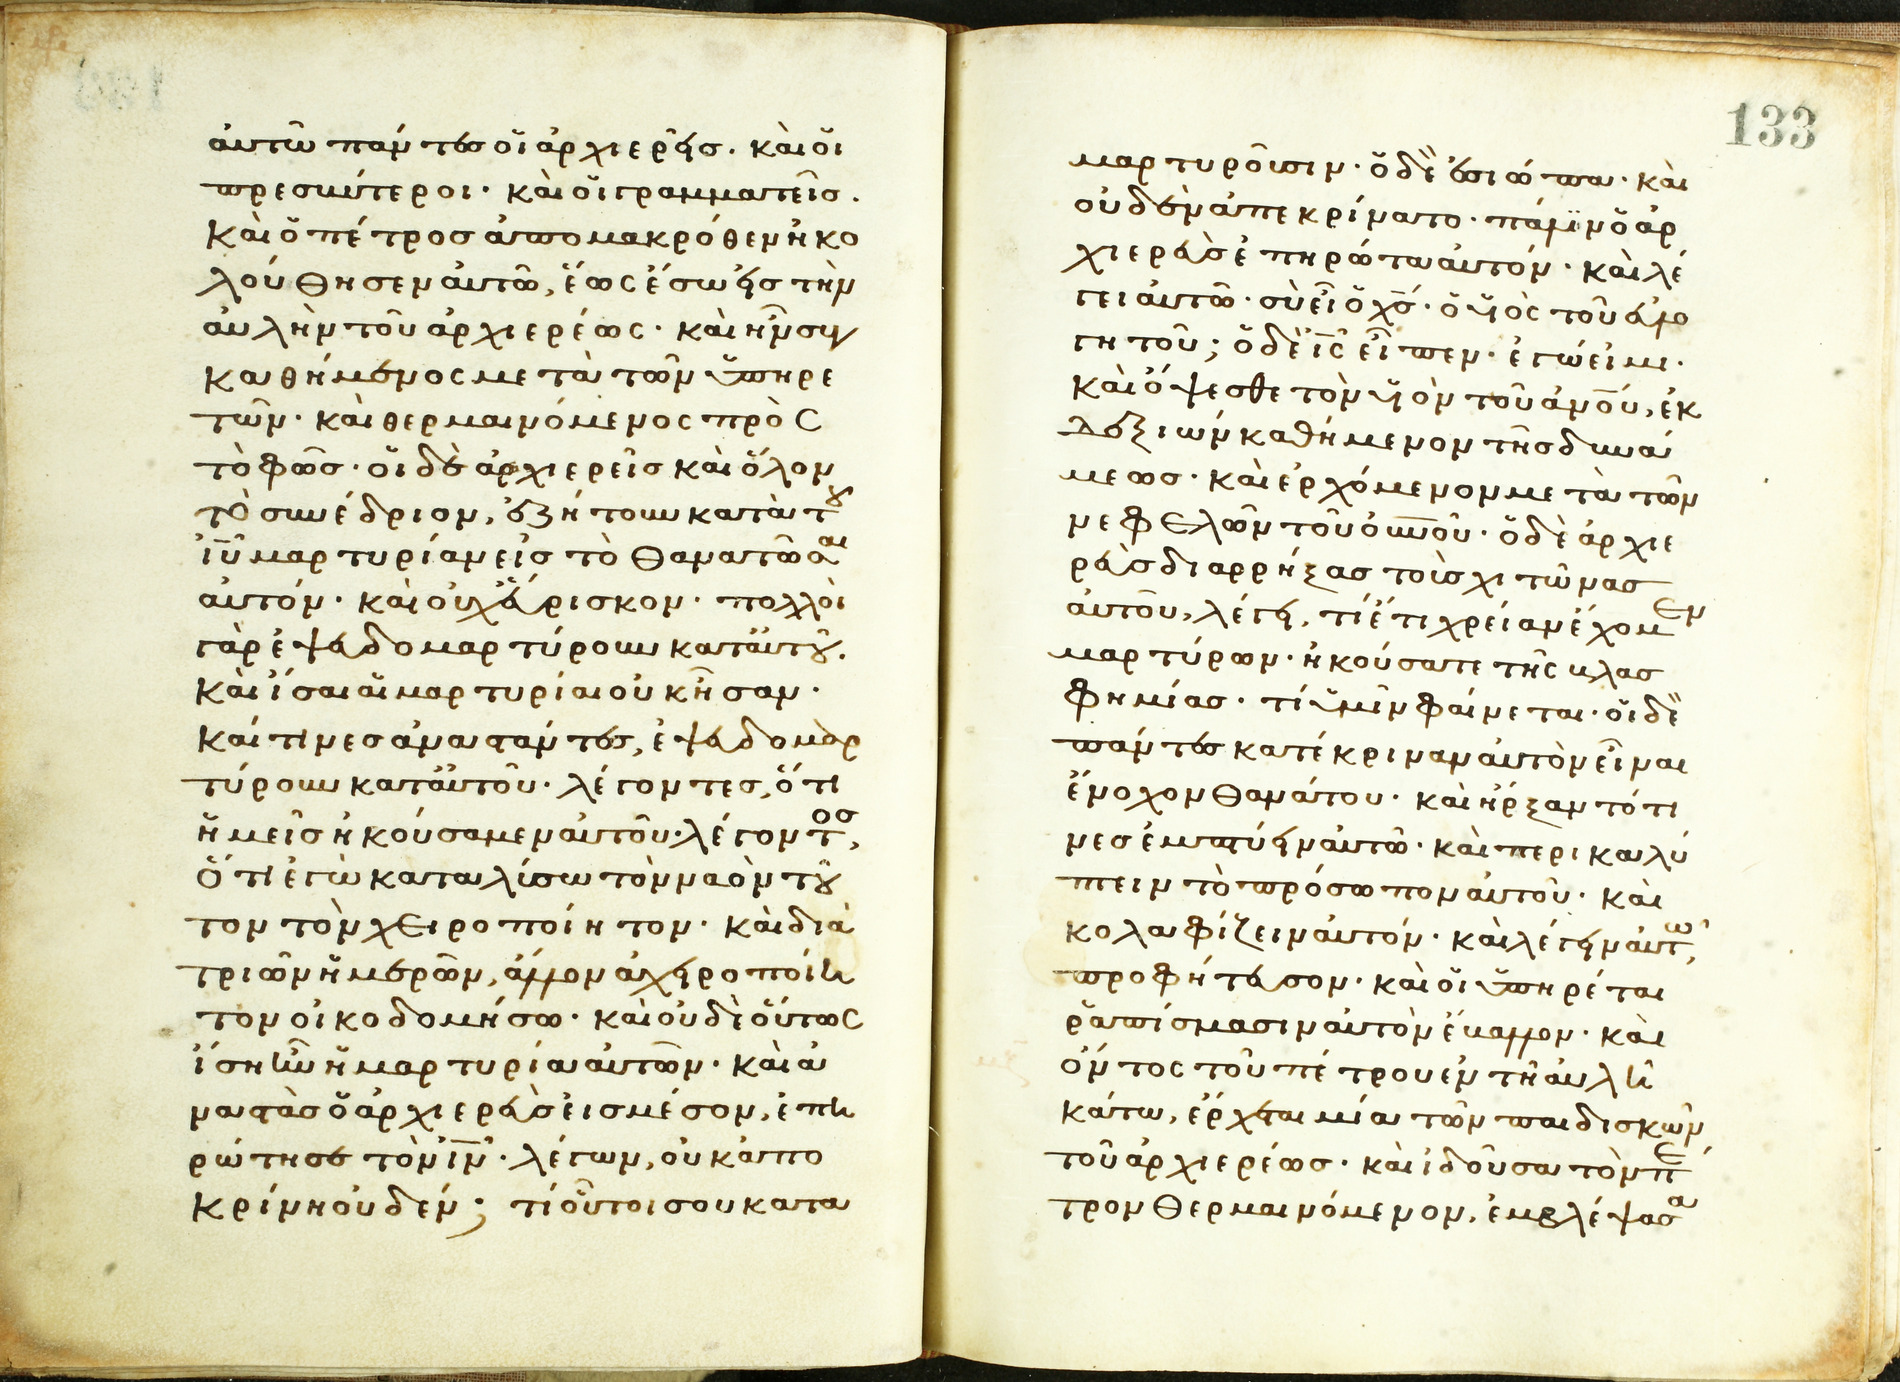 αὐτῶ πάντες οἱ ἀρχιερεῖς· καὶ οἱ
πρεσβύτεροι· καὶ οἱ γραμματεῖς.
καὶ ὁ πέτρος ἀπο μακρόθεν ἠκο
λούθησεν αὐτῶ, ἕως ἔσω εἰς τὴν
αὐλὴν τοῦ ἀρχιερέως· καὶ ἦν συγ
καθήμενος μετὰ τῶν ὑπηρε
τῶν· καὶ θερμαινόμενος πρὸς
τὸ φῶς· οἱ δὲ ἀρχιερεῖς καὶ ὅλον
τὸ συνέδριον, ἐζήτουν κατὰ τοῦ
ἰῦ μαρτυρίαν εἰς τὸ θανατῶσαι
αὐτόν· καὶ οὐχ εὕρισκον· πολλοὶ
γὰρ ἐψευδομαρτύρουν κατ αὐτοῦ.
καὶ ἴσαι αἱ μαρτυρίαι οὐκ ἦσαν·
καί τινες ἀναστάντες, ἐψευδομαρ
τύρουν κατ αὐτοῦ· λέγοντες, ὅτι
ἡμεῖς ἠκούσαμεν αὐτοῦ· λέγοντος,
ὅτι ἐγὼ καταλύσω τὸν ναὸν τοῦ
τον τὸν χειροποίητον· καὶ διὰ
τριῶν ἡμερῶν, ἄλλον ἀχειροποίη
τον οἰκοδομήσω· καὶ οὐδὲ οὕτως
ἴση ἦν ἡ μαρτυρία αὐτῶν· καὶ ἀ
ναστὰς ὁ ἀρχιερεὺς εἰς μέσον, ἐπη
ρώτησε τὸν ἰν· λέγων, οὐκ ἀπο
κρίνη οὐδέν; τί οὗτοι σου κατα
133
μαρτυροῦσιν· ὁ δὲ ἐσιώπα· καὶ
οὐδὲν ἀπεκρίνατο· πάλιν ὁ ἀρ
χιερεὺς ἐπηρώτα αὐτόν· καὶ λέ
γει αὐτῶ· σὺ εἶ ὁ χς· ὁ υἱὸς τοῦ εὐλο
γητοῦ; ὁ δὲ ις εἶπεν· ἐγώ εἰμι.
καὶ ὄψεσθε τὸν υἱὸν τοῦ ἀνοῦ, ἐκ
δεξιῶν καθήμενον τῆς δυνά
μεως· καὶ ἐρχόμενον μετὰ τῶν
νεφελῶν τοῦ οὐνοῦ· ὁ δὲ ἀρχιε
ρεὺς διαρρήξας τοὺς χιτῶνας
αὐτοῦ, λέγει, τί ἔτι χρείαν ἔχομεν
μαρτύρων· ἠκούσατε τῆς βλασ
φημίας· τί ὑμῖν φαίνεται· οἱ δὲ
πάντες κατέκριναν αὐτὸν εἶναι
ἔνοχον θανάτου· καὶ ἤρξαντό τι
νες ἐμπτύειν αὐτῶ· καὶ περικαλύ
πτειν τὸ πρόσωπον αὐτοῦ· καὶ
κολαφίζειν αὐτόν· καὶ λέγειν αὐτῶ,
προφήτευσον· καὶ οἱ ὑπηρέται
ῥαπίσμασιν αὐτὸν ἔβαλλον· καὶ
ὄντος τοῦ πέτρου ἐν τῆ αὐλῆ
κάτω, ἔρχεται μία τῶν παιδισκῶν
τοῦ ἀρχιερέως· καὶ ἰδοῦσα τὸν πέ
τρον θερμαινόμενον, ἐμβλέψασα